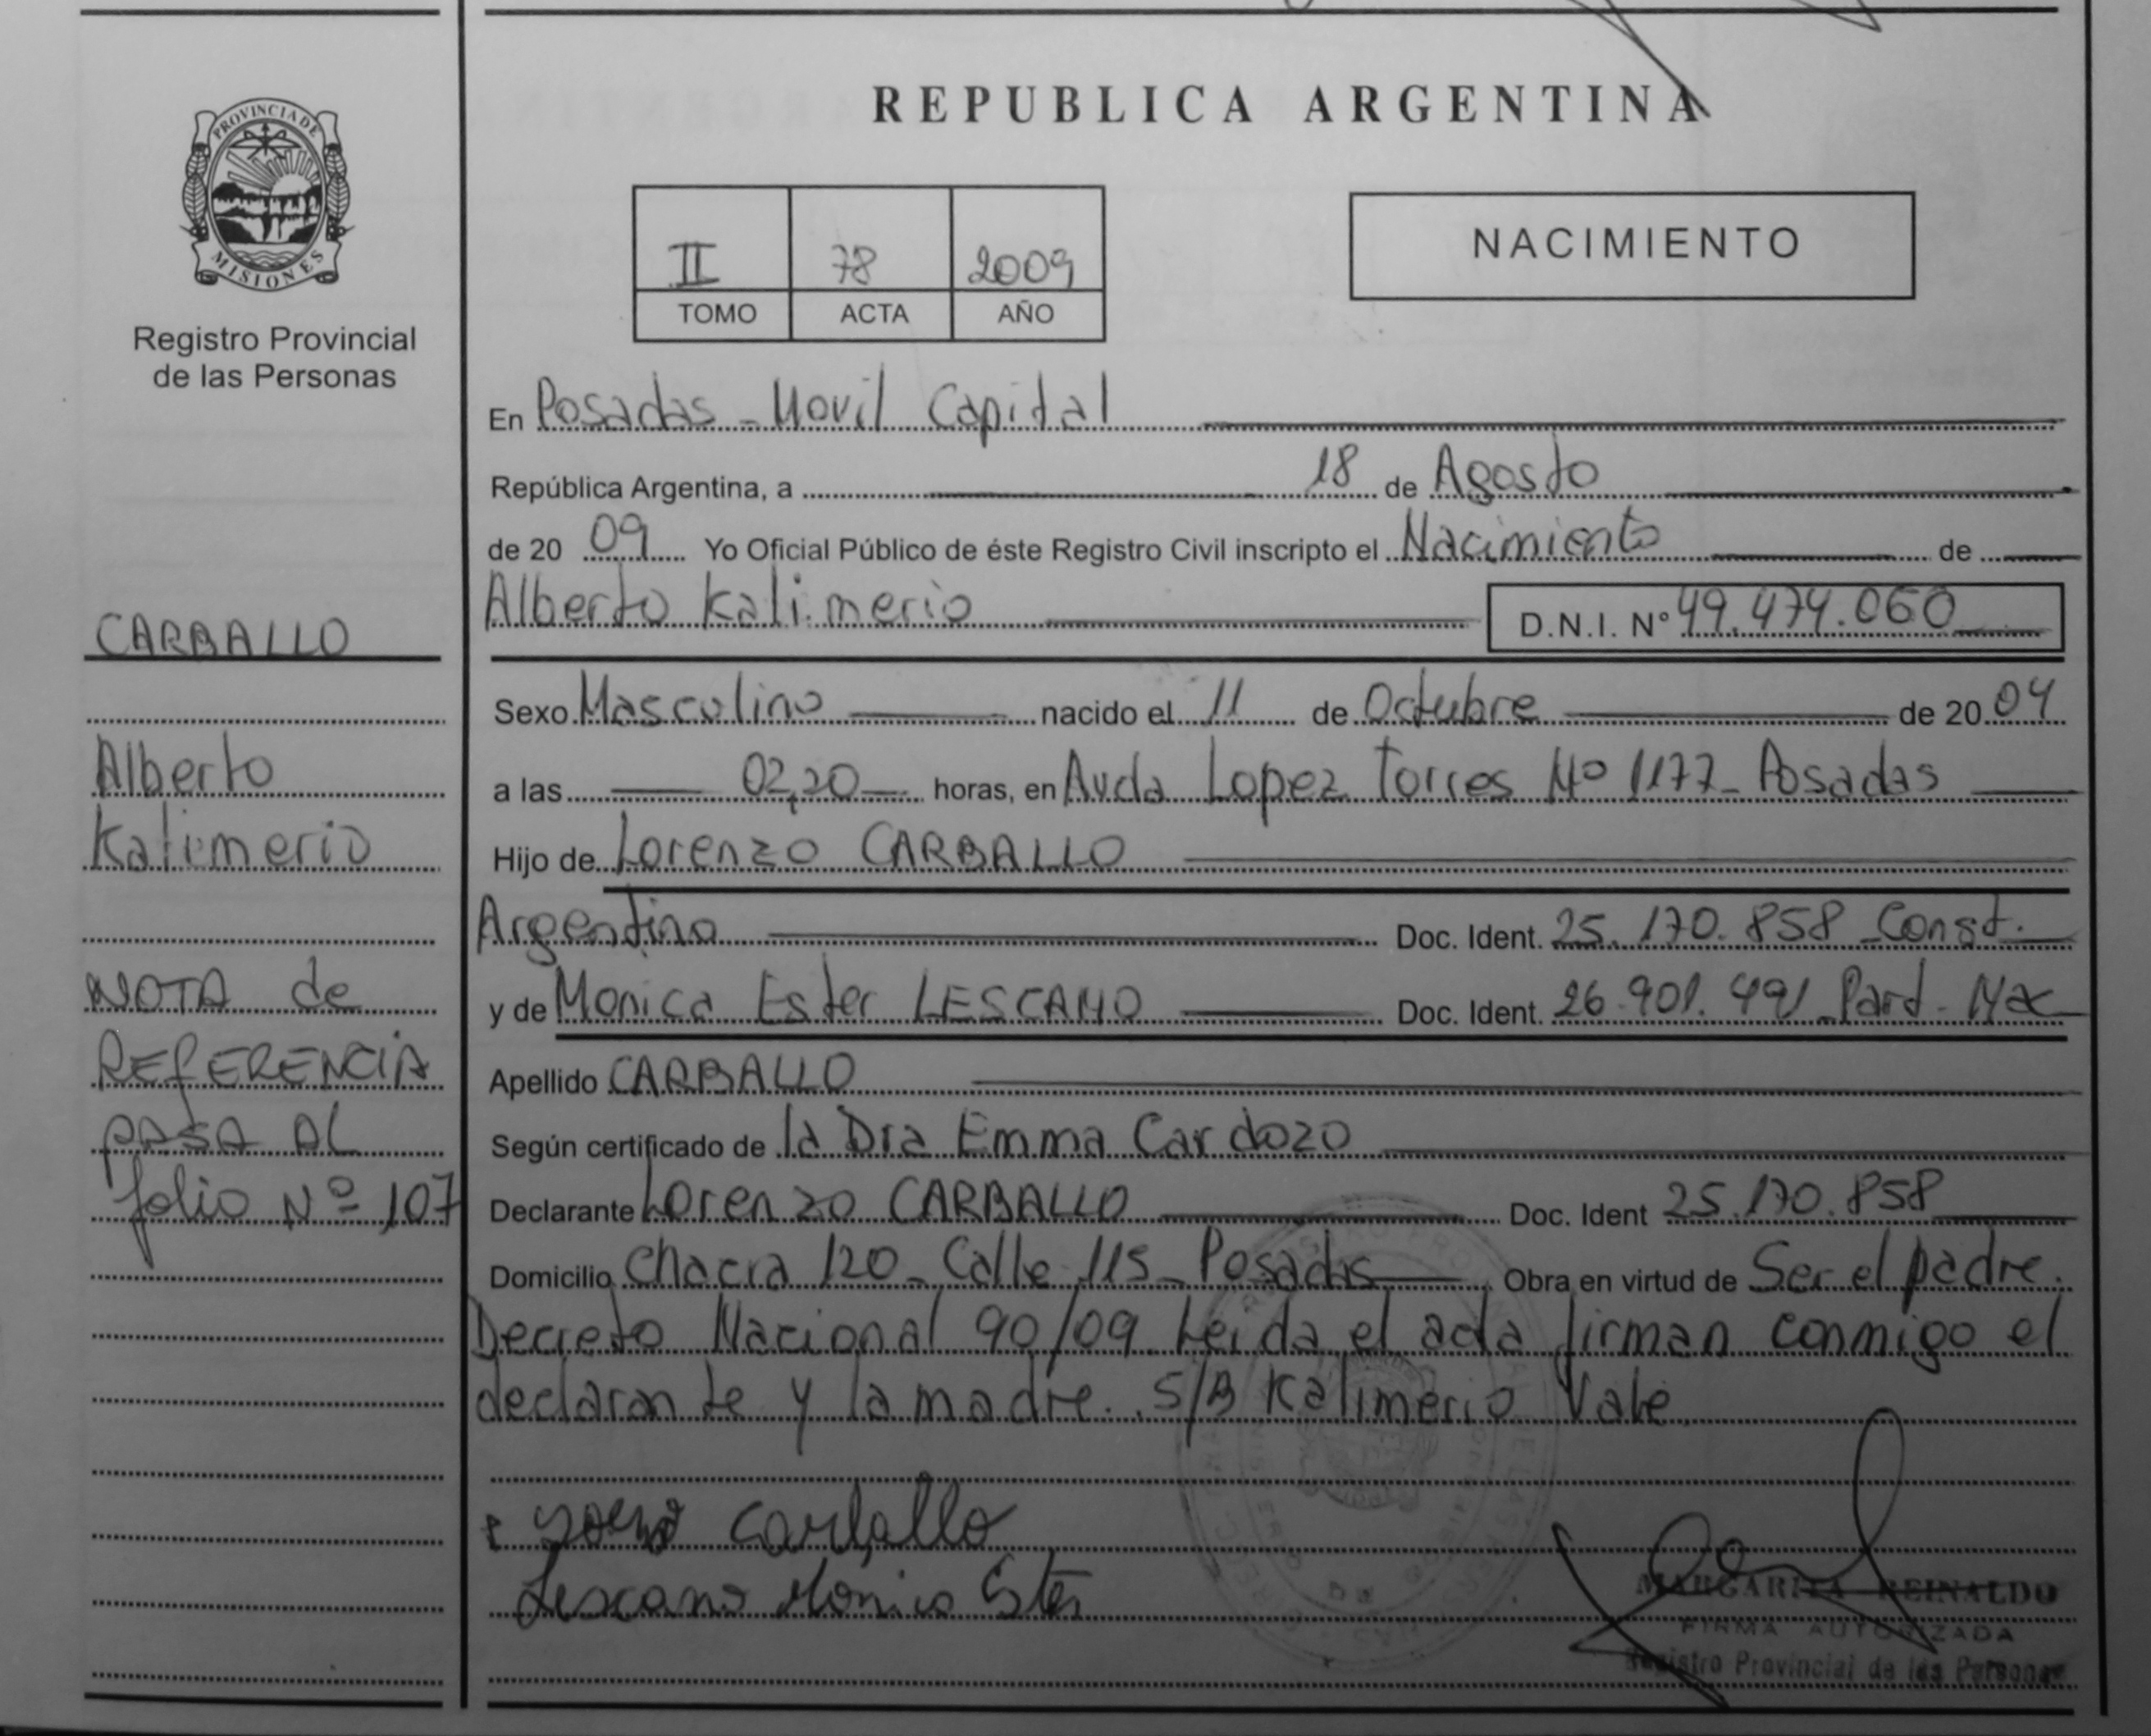 PROVINCIA DE
MISIONES
Registro Provincial
de las Personas
CARBALLO
Alberto
Kalimerio
NOTA de
REFERENCIA
PASA AL
folio Nº 107
REPUBLICA ARGENTINA
II 78 2009
TOMO ACTA AÑO
NACIMIENTO
En Posadas - Movil Capital
República Argentina, a 18 de Agosto
de 20 09 Yo Oficial Público de éste Registro Civil inscripto el Nacimiento de
Alberto Kalimerio D.N.I. Nº 49.474.060
Sexo Masculino nacido el 11 de Octubre de 20 04
a las 02,20 horas, en Avda Lopez Torres Nº 1177 - Posadas
Hijo de Lorenzo CARBALLO
Argentino Doc. Ident. 25.170.858 Const.
y de Monica Ester LESCANO Doc. Ident. 26.901.491 Part. Nac
Apellido CARBALLO
Según certificado de la Dra Emma Cardozo
Declarante Lorenzo CARBALLO Doc. Ident 25.170.858
Domicilio Chacra 120 - Calle 115 - Posadas Obra en virtud de Ser el padre.
Decreto Nacional 90/09. Leida el acta firman conmigo el
declarante y la madre. S/B Kalimerio Vale
Carballo
Lescano Monica Ester
MARGARITA REINALDO
FIRMA AUTORIZADA
Registro Provincial de las Personas